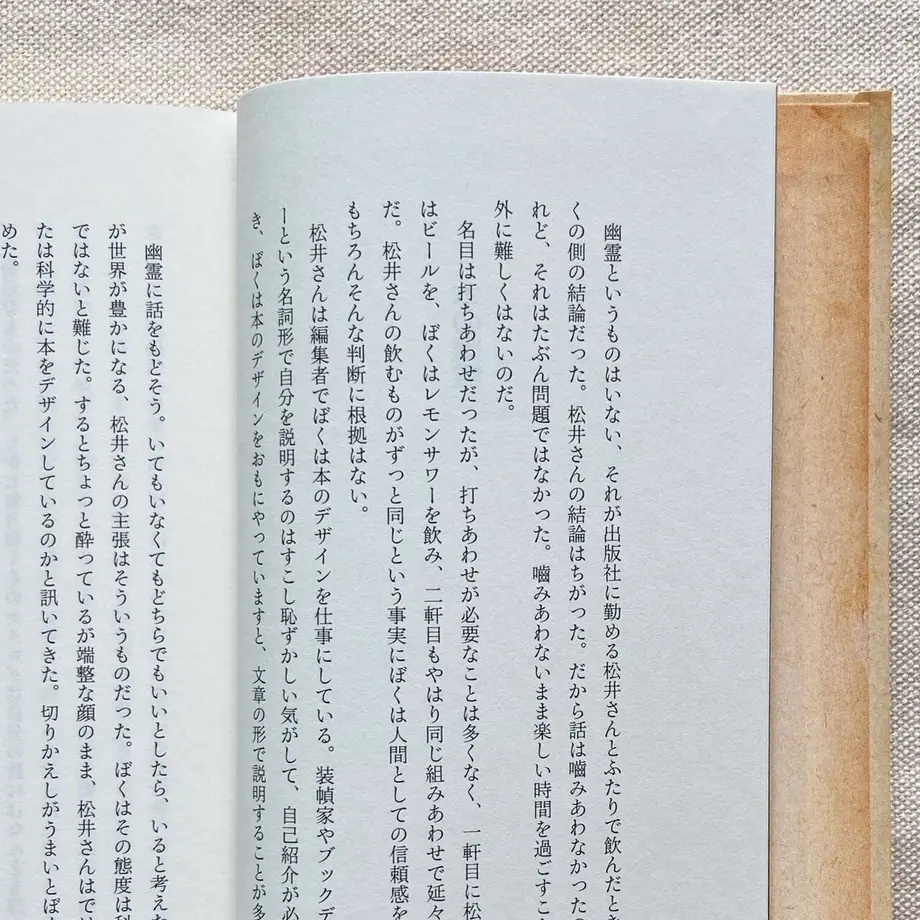 幽霊というものはいない、それが出版社に勤める松井さんとふたりで飲んだとき
くの側の結論だった。松井さんの結論はちがった。だから話は噛みあわなかった
れど、それはたぶん問題ではなかった。噛みあわないまま楽しい時間を過ごすこ
外に難しくはないのだ。
名目は打ちあわせだったが、打ちあわせが必要なことは多くなく、一軒目に松
はビールを、ぼくはレモンサワーを飲み、二軒目もやはり同じ組みあわせで延々
だ。松井さんの飲むものがずっと同じという事実にぼくは人間としての信頼感を
もちろんそんな判断に根拠はない。
松井さんは編集者でぼくは本のデザインを仕事にしている。装幀家やブックデ
ーという名詞形で自分を説明するのはすこし恥ずかしい気がして、自己紹介が必
き、ぼくは本のデザインをおもにやっていますと、文章の形で説明することが多
幽霊に話をもどそう。いてもいなくてもどちらでもいいとしたら、いると考え
が世界が豊かになる、松井さんの主張はそういうものだった。ぼくはその態度は科
ではないと難じた。するとちょっと酔っているが端整な顔のまま、松井さんはでは
たは科学的に本をデザインしているのかと訊いてきた。切りかえしがうまいとぼ
めた。